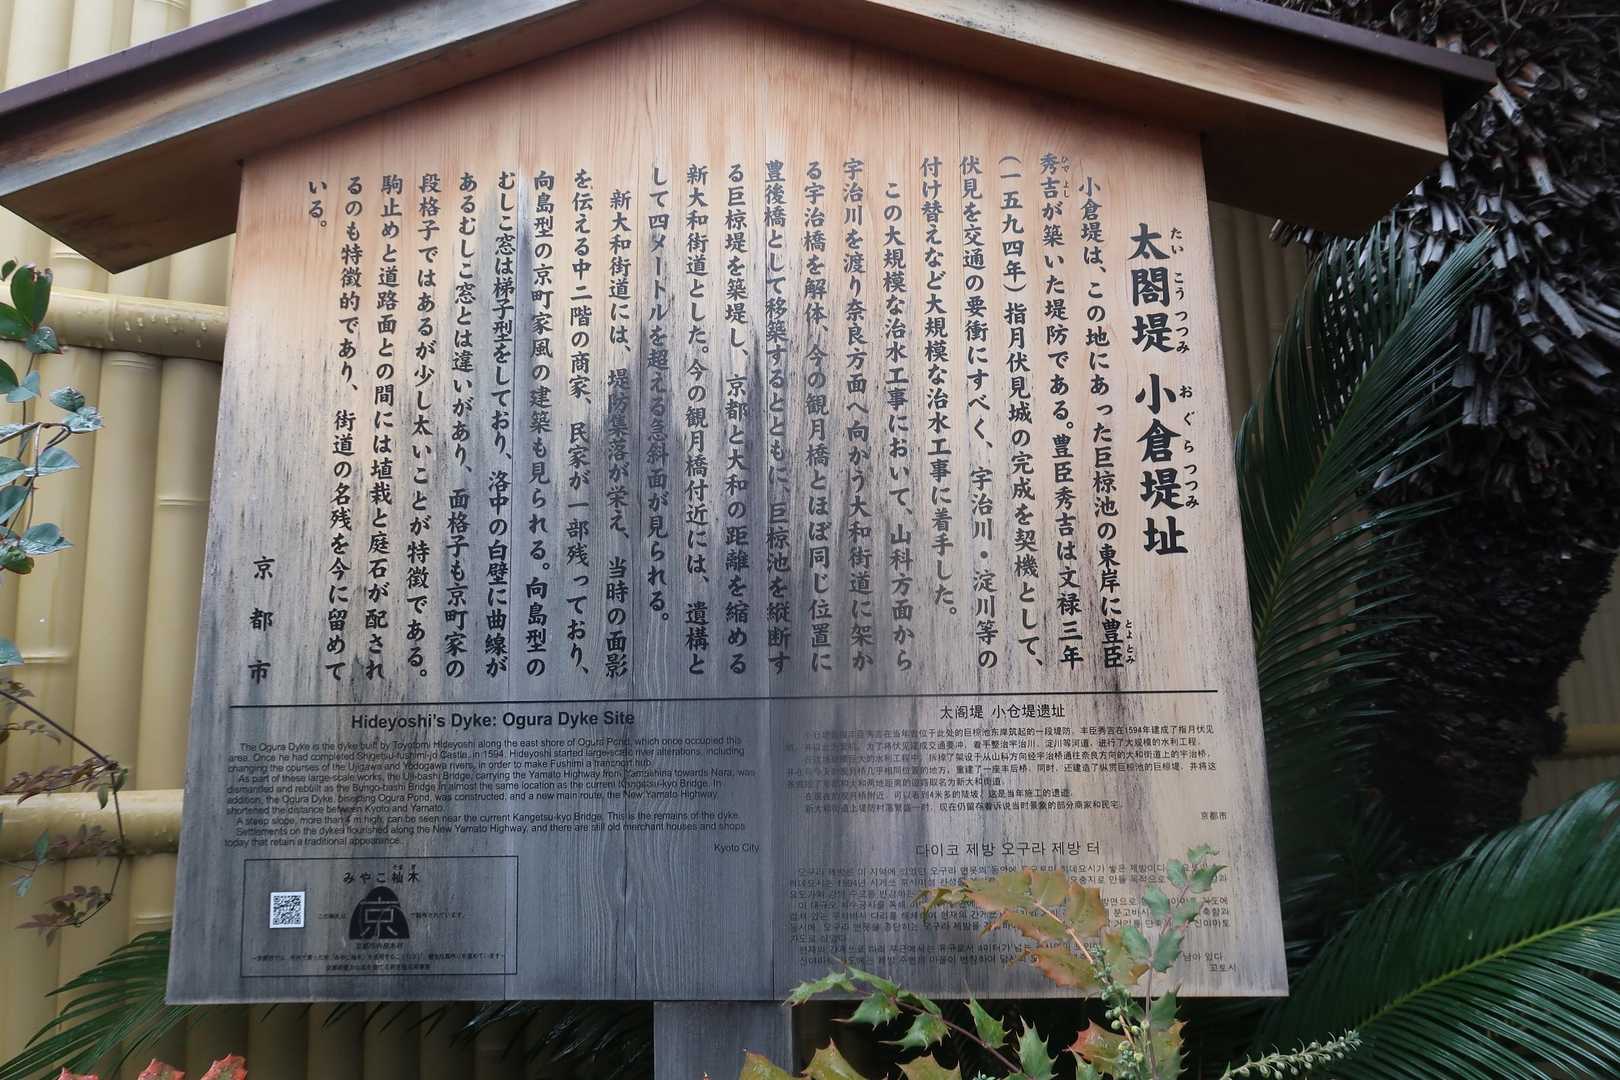 太閤堤 小倉堤址
たいこうつつみ おぐらつつみ
小倉堤は、この地にあった巨椋池の東岸に豊臣
とよとみ
秀吉が築いた堤防である。豊臣秀吉は文禄三年
ひでよし
(一五九四年)指月伏見城の完成を契機として、
伏見を交通の要衝にすべく、宇治川・淀川等の
付け替えなど大規模な治水工事に着手した。
この大規模な治水工事において、山科方面から
宇治川を渡り奈良方面へ向かう大和街道に架か
る宇治橋を解体、今の観月橋とほぼ同じ位置に
豊後橋として移築するとともに、巨椋池を縦断す
る巨椋堤を築堤し、京都と大和の距離を縮める
新大和街道とした。今の観月橋付近には、遺構と
して四メートルを超える急斜面が見られる。
新大和街道には、堤防集落が栄え、当時の面影
を伝える中二階の商家、民家が一部残っており、
向島型の京町家風の建築も見られる。向島型の
むしこ窓は梯子型をしており、洛中の白壁に曲線が
あるむしこ窓とは違いがあり、面格子も京町家の
段格子ではあるが少し太いことが特徴である。
駒止めと道路面との間には埴栽と庭石が配され
るのも特徴的であり、街道の名残を今に留めて
いる。
京都市
Hideyoshi's Dyke: Ogura Dyke Site
The Ogura Dyke is the dyke built by Toyotomi Hideyoshi along the east shore of Ogura Pond, which once occupied this
area. Once he had completed Shigetsu-fushimi-jo Castle, in 1594, Hideyoshi started large-scale river alterations, including
changing the courses of the Ujigawa and Yodogawa rivers, in order to make Fushimi a transport hub.
As part of these large-scale works, the Uji-bashi Bridge, carrying the Yamato Highway from Yamashina towards Nara, was
dismantled and rebuilt as the Bungo-bashi Bridge in almost the same location as the current Kangetsu-kyo Bridge. In
addition, the Ogura Dyke, bisecting Ogura Pond, was constructed, and a new main route, the New Yamato Highway,
shortened the distance between Kyoto and Yamato.
A steep slope, more than 4 m high, can be seen near the current Kangetsu-kyo Bridge. This is the remains of the dyke.
Settlements on the dykes flourished along the New Yamato Highway, and there are still old merchant houses and shops
today that retain a traditional appearance.
Kyoto City
みやこ杣木
そまぎ
京
京都市内産木材
太阁堤 小仓堤遗址
小仓堤是指丰臣秀吉在当年曾位于此处的巨椋池东岸筑起的一段堤防。丰臣秀吉在1594年建成了指月伏见
为了将伏见建成交通要冲，着手整治宇治川、淀川等河道，进行了大规模的水利工程。
在这场规模巨大的水利工程中，拆掉了架设于从山科方向经宇治桥通往奈良方向的大和街道上的宇治桥，
并在与今天的观月桥几乎相同位置的地方，重建了一座丰后桥。同时，还建造了纵贯巨椋池的巨椋堤，并将这
条缩短了京都和大和两地距离的道路取名为新大和街道。
在现在的观月桥附近，可以看到4米多的陡坡，这是当年施工的遗迹。
新大和街道上堤防村落繁盛一时，现在仍留存着诉说当时景象的部分商家和民宅。
京都市
다이코 제방 오구라 제방 터
교토시